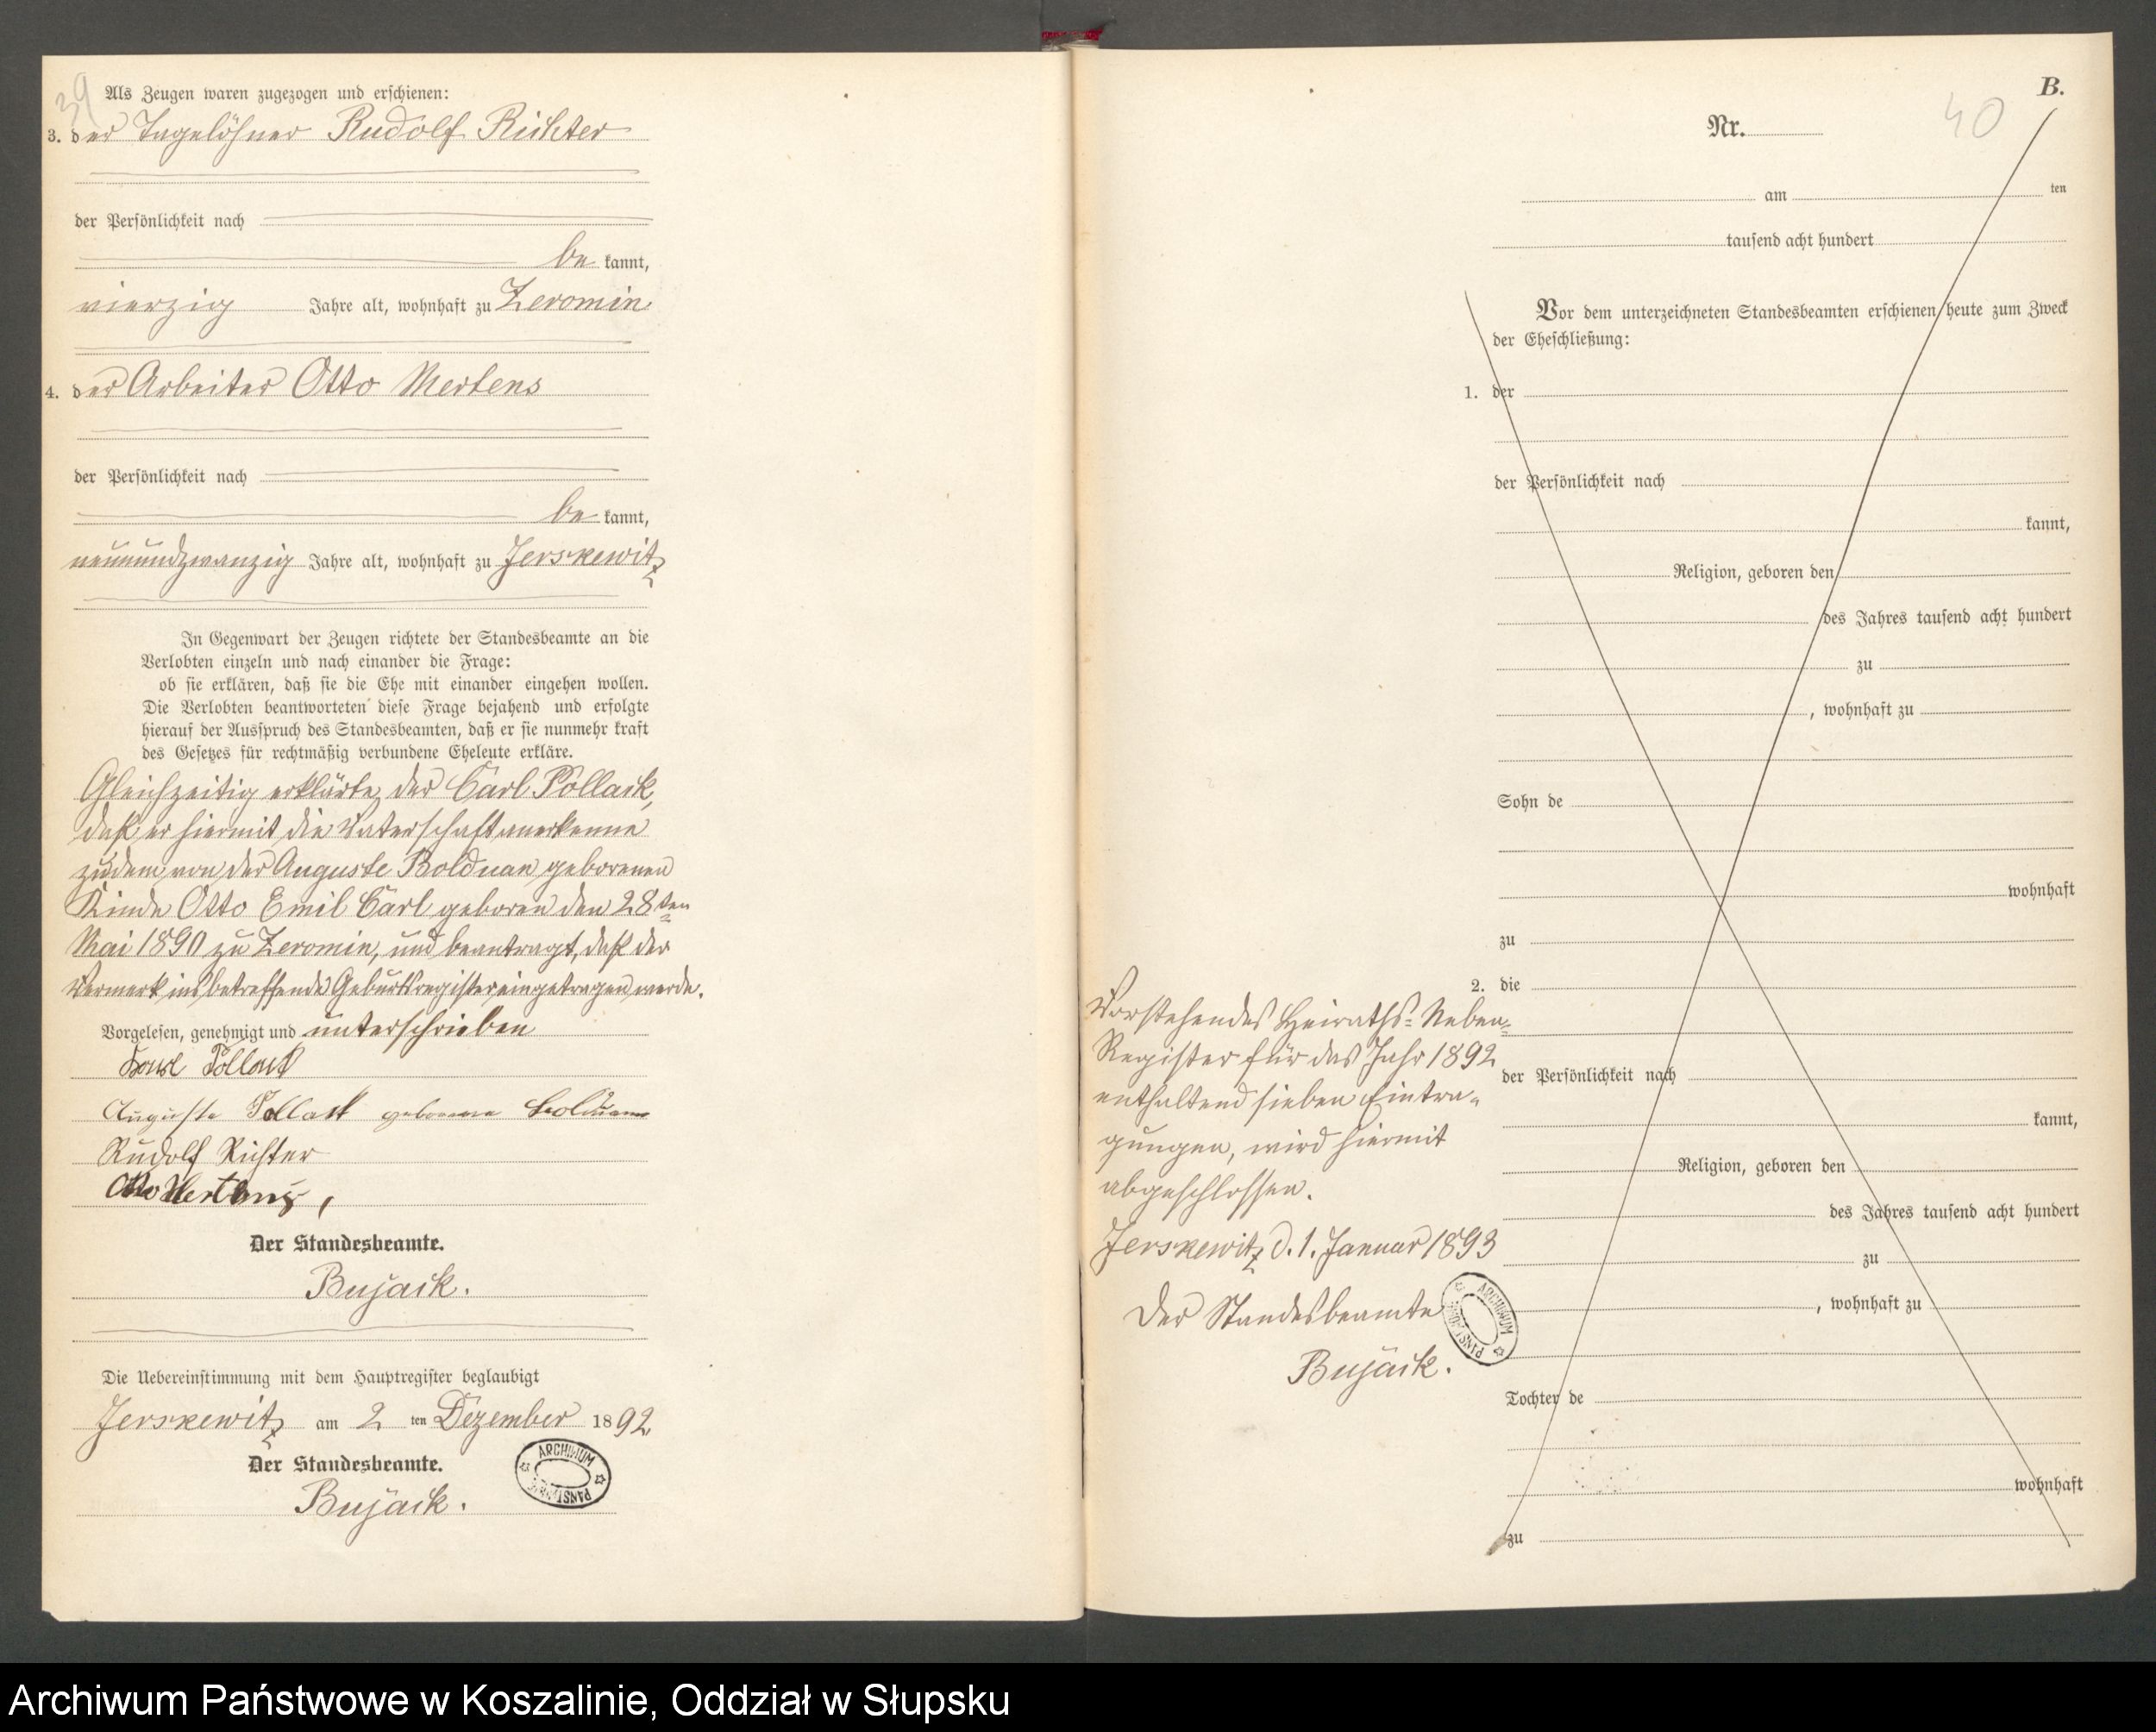 39
Als Zeugen waren zugezogen und erschienen:
3. der Tagelöhner Rudolf Richter
der Persönlichkeit nach
be kannt,
vierzig Jahre alt, wohnhaft zu Zeromin
4. der Arbeiter Otto Mertens
der Persönlichkeit nach
be kannt,
neunundzwanzig Jahre alt, wohnhaft zu Jerskewitz
In Gegenwart der Zeugen richtete der Standesbeamte an die
Verlobten einzeln und nach einander die Frage:
ob sie erklären, daß sie die Ehe mit einander eingehen wollen.
Die Verlobten beantworteten diese Frage bejahend und erfolgte
hierauf der Ausspruch des Standesbeamten, daß er sie nunmehr kraft
des Gesetzes für rechtmäßig verbundene Eheleute erkläre.
Gleichzeitig erklärte der Carl Pollack,
daß er hiermit die Vaterschaft anerkenne
zu dem von der Auguste Bolduan geborenen
Kinde Otto Emil Carl geboren den 28ten
Mai 1890 zu Zeromin, und beantragt, daß der
Vermerk ins betreffende Geburtsregister eingetragen werde.
Vorgelesen, genehmigt und unterschrieben
Karl Pollack
Auguste Pollack geborene Bolduan
Rudolf Richter
Otto Mertens,
Der Standesbeamte.
Bujack.
Die Uebereinstimmung mit dem Hauptregister beglaubigt
Jerskewitz am 2 ten Dezember 1892
Der Standesbeamte.
Bujack.
ARCHIWUM PAŃSTWOWE
B.
40
Nr.
am ten
tausend acht hundert
Vor dem unterzeichneten Standesbeamten erschienen heute zum Zweck
der Eheschließung:
1. der
der Persönlichkeit nach
kannt,
Religion, geboren den
des Jahres tausend acht hundert
zu
, wohnhaft zu
Sohn de
wohnhaft
zu
2. die
der Persönlichkeit nach
kannt,
Religion, geboren den
des Jahres tausend acht hundert
zu
, wohnhaft zu
Tochter de
wohnhaft
zu
Vorstehendes Heiraths-Neben-
Register für das Jahr 1892
enthaltend sieben Eintra-
gungen, wird hiermit
abgeschlossen.
Jerskewitz d. 1. Januar 1893
Der Standesbeamte
Bujack.
ARCHIWUM PAŃSTWOWE
Archiwum Państwowe w Koszalinie, Oddział w Słupsku